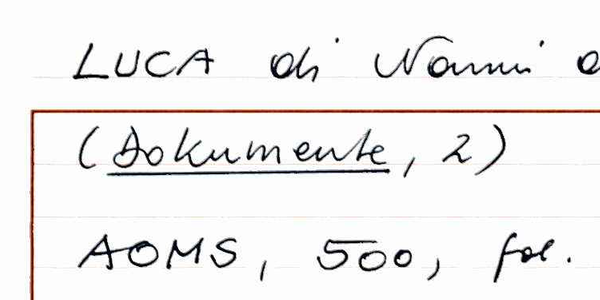 LUCA di Nanni
(Dokumente, 2)
AOMS, 500, fol.